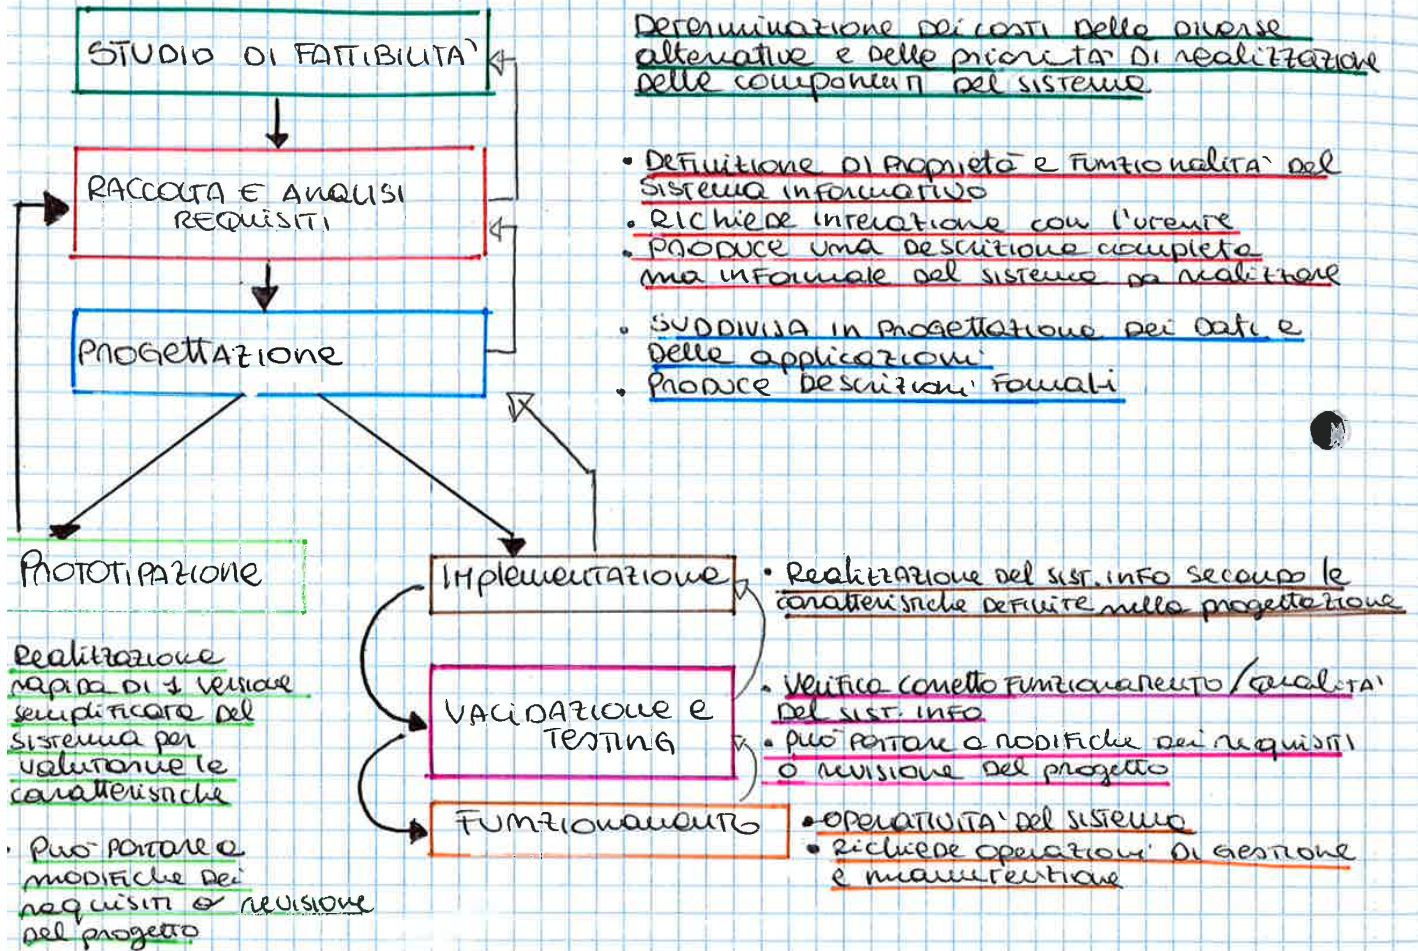 STUDIO DI FATTIBILITA'
Determinazione dei costi delle diverse
alternative e delle priorità di realizzazione
delle componenti del sistema
RACCOLTA E ANALISI
REQUISITI
• Definizione di proprietà e funzionalità del
sistema informativo
• Richiede interazione con l'utente
• Produce una descrizione completa
ma informale del sistema da realizzare
PROGETTAZIONE
• SUDDIVISA in progettazione dei dati e
delle applicazioni
• Produce descrizioni formali
PROTOTIPAZIONE
Realizzazione
rapida di 1 versione
semplificata del
sistema per
valutarne le
caratteristiche
• Può portare a
modifiche dei
requisiti o revisione
del progetto
Implementazione
• Realizzazione del sist. info secondo le
caratteristiche definite nella progettazione
VALIDAZIONE e
TESTING
• Verifica corretto funzionamento/qualità
del sist. info
• può portare a modifiche dei requisiti
o revisione del progetto
FUNZIONAMENTO
• OPERATIVITA' del sistema
• Richiede operazioni di gestione
e manutenzione